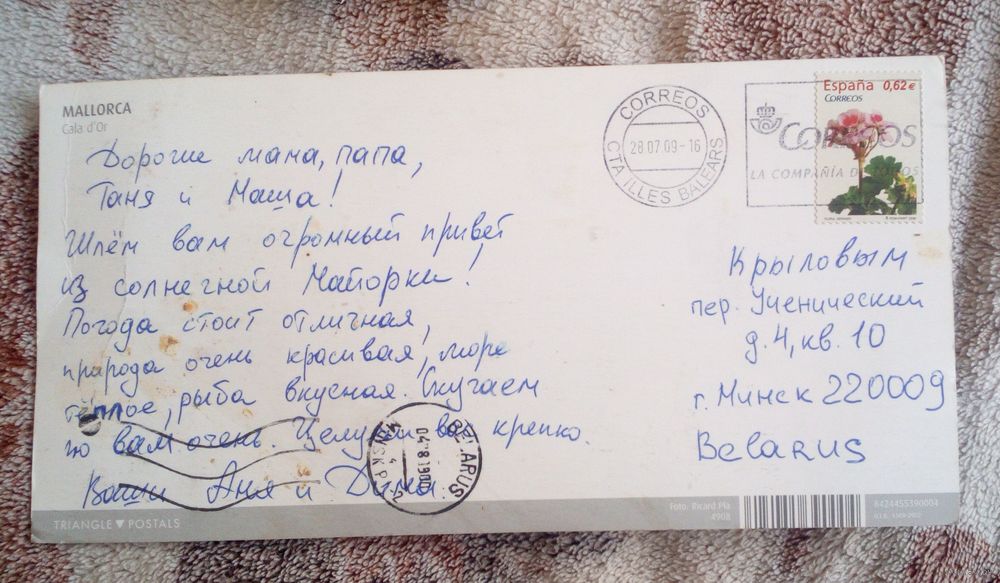 MALLORCA
Cala d'Or
Дорогие мама, папа,
Таня и Маша!
Шлём вам огромный привет
из солнечной Майорки!
Погода стоит отличная,
природа очень красивая, море
тёплое, рыба вкусная. Скучаем
по вам очень. Целуем вас крепко.
Ваши Аня и Дима.
CORREOS
28 07 09 - 16
CTA ILLES BALEARS
CORREOS
LA COMPAÑÍA D
España 0,62€
CORREOS
Крыловым
пер. Ученический
д. 4, кв. 10
г. Минск 220009
Belarus
BELARUS
MINSK
TRIANGLE ▼ POSTALS
Foto. Ricard Pla
4908
8424455390004